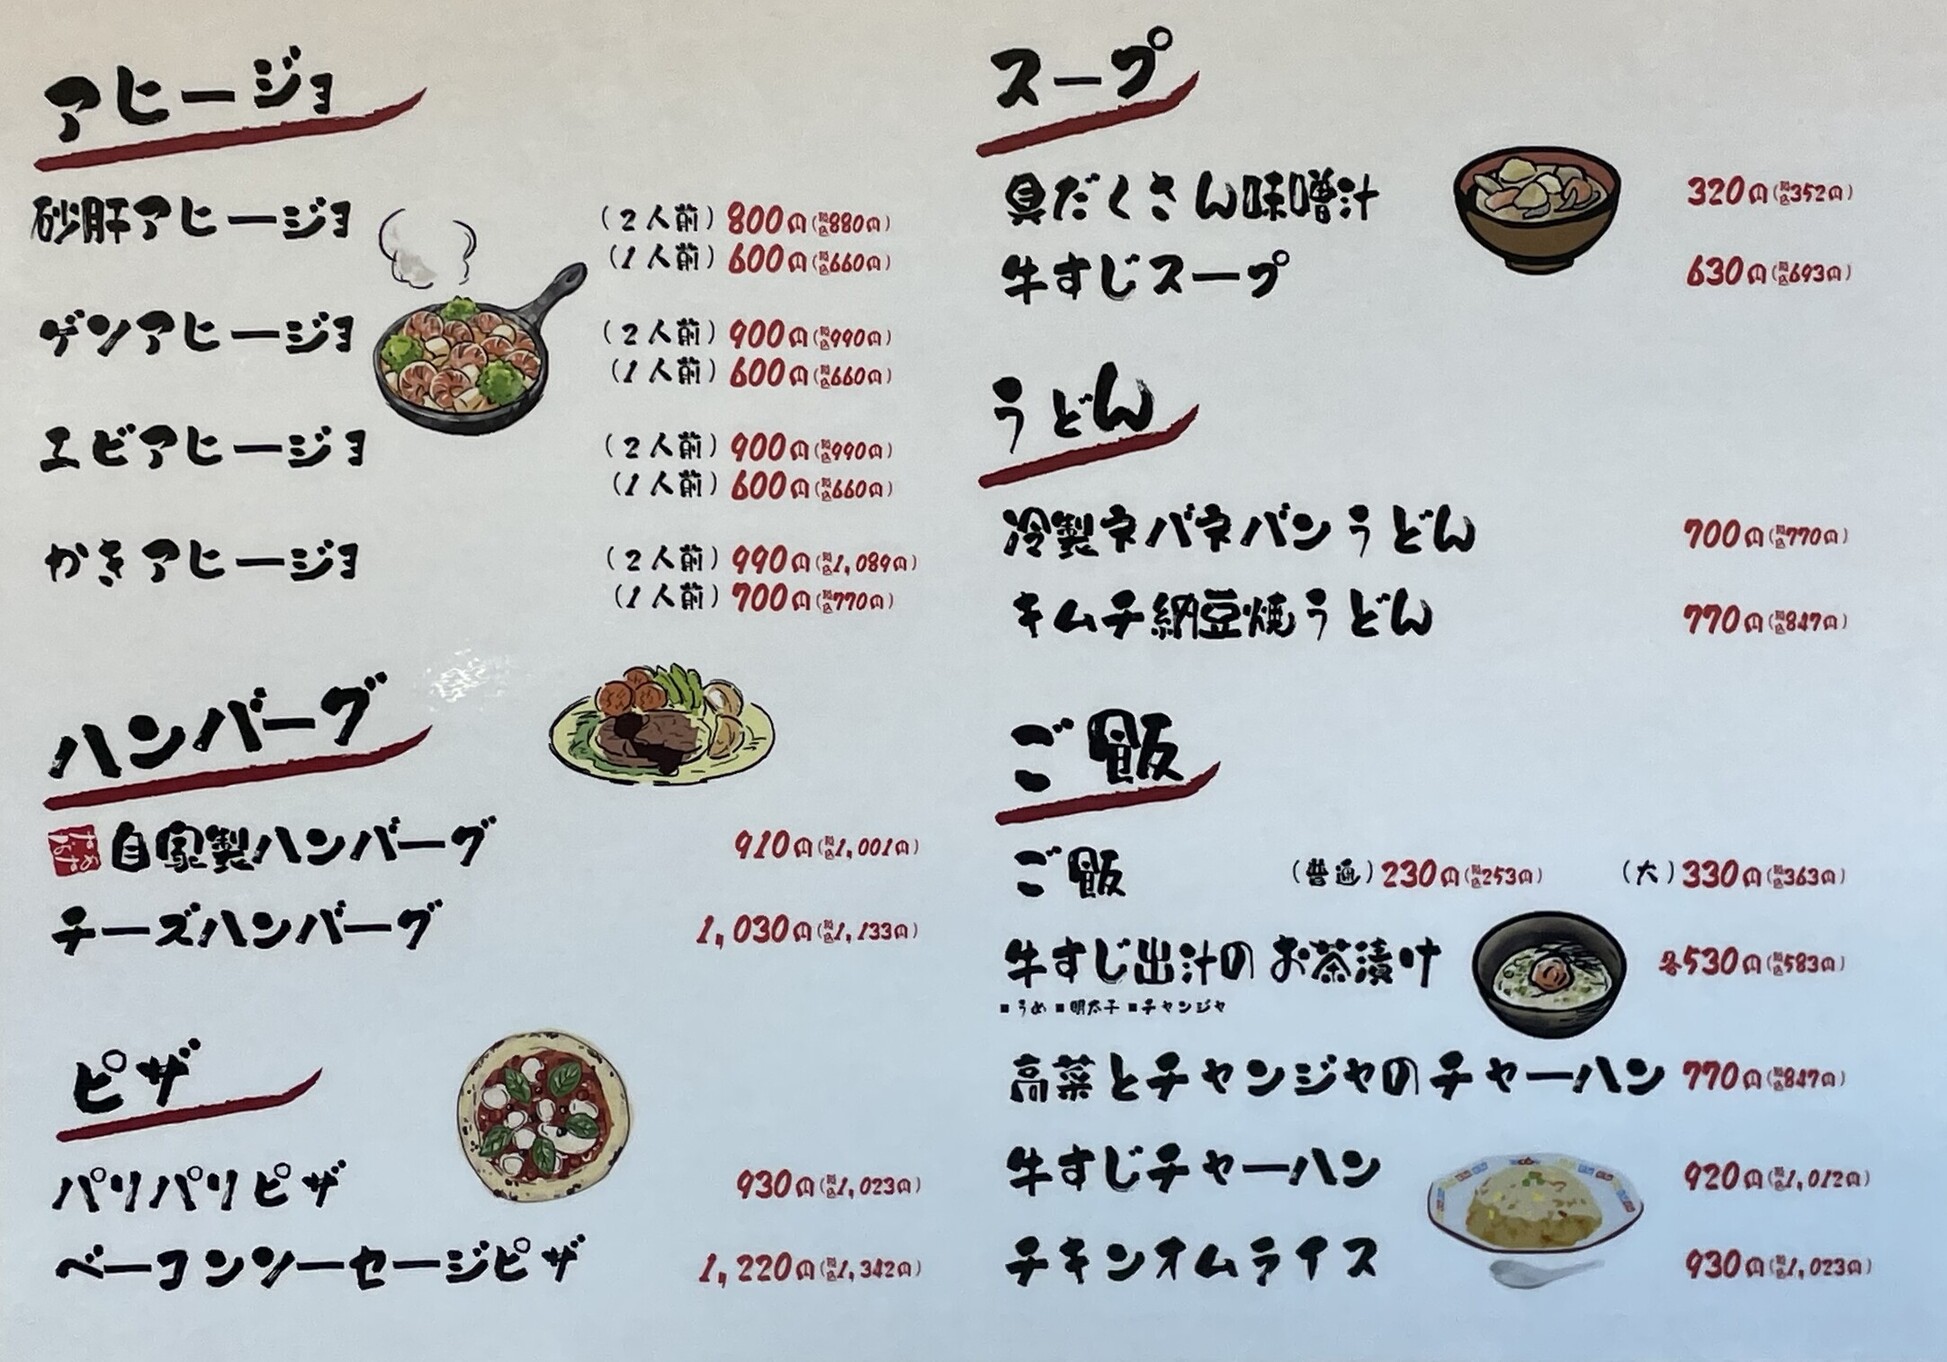 アヒージョ
砂肝アヒージョ (2人前) 800円(税込880円)
(1人前) 600円(税込660円)
ゲソアヒージョ (2人前) 900円(税込990円)
(1人前) 600円(税込660円)
エビアヒージョ (2人前) 900円(税込990円)
(1人前) 600円(税込660円)
かきアヒージョ (2人前) 990円(税込1,089円)
(1人前) 700円(税込770円)
ハンバーグ
自家製ハンバーグ 910円(税込1,001円)
チーズハンバーグ 1,030円(税込1,133円)
ピザ
パリパリピザ 930円(税込1,023円)
ベーコンソーセージピザ 1,220円(税込1,342円)
スープ
具だくさん味噌汁 320円(税込352円)
牛すじスープ 630円(税込693円)
うどん
冷製ネバネバンうどん 700円(税込770円)
キムチ納豆焼うどん 770円(税込847円)
ご飯
ご飯 (普通)230円(税込253円) (大)330円(税込363円)
牛すじ出汁のお茶漬け 各530円(税込583円)
■うめ ■明太子 ■チャンジャ
高菜とチャンジャのチャーハン 770円(税込847円)
牛すじチャーハン 920円(税込1,012円)
チキンオムライス 930円(税込1,023円)